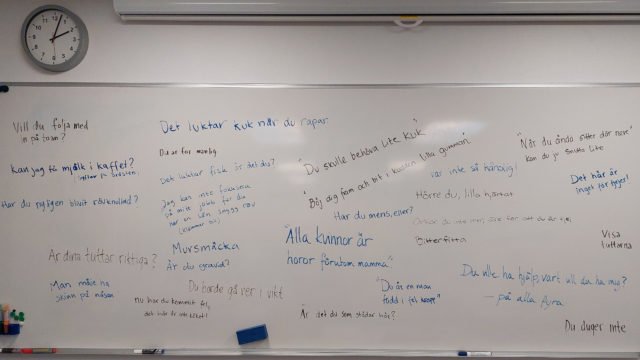 Vill du följa med
in på toan?
Det luktar kuk när du rapar
Du är för manlig
Kan jag få mjölk i kaffet?
Det luktar fisk är det du?
Jag kan inte fokusera
på mitt jobb för du
har en sån snygg röv
"Du skulle behöva lite kuk"
"Böj dig fram och bit i kudden lilla gumman"
"När du ändå sitter där nere"
kan du ju smutta lite
var inte så känslig!
Det här är
inget för tjejer!
Hörre du, lilla hjärtat
Har du mens, eller?
Har du blivit rövknullad?
Bitterfitta
Visa
tuttarna
"Alla kvinnor är
horor förutom mamma"
Är dina tuttar riktiga?
Mursmäcka
Är du gravid?
Du borde gå ner i vikt
Man måste ha
skinn på näsan
nu har du kommit fel,
"Du är en man
född i fel kropp"
Är det du som städar här?
Du ville ha hjälp, vart vill du ha mig?
– på alla fyra
Du duger inte